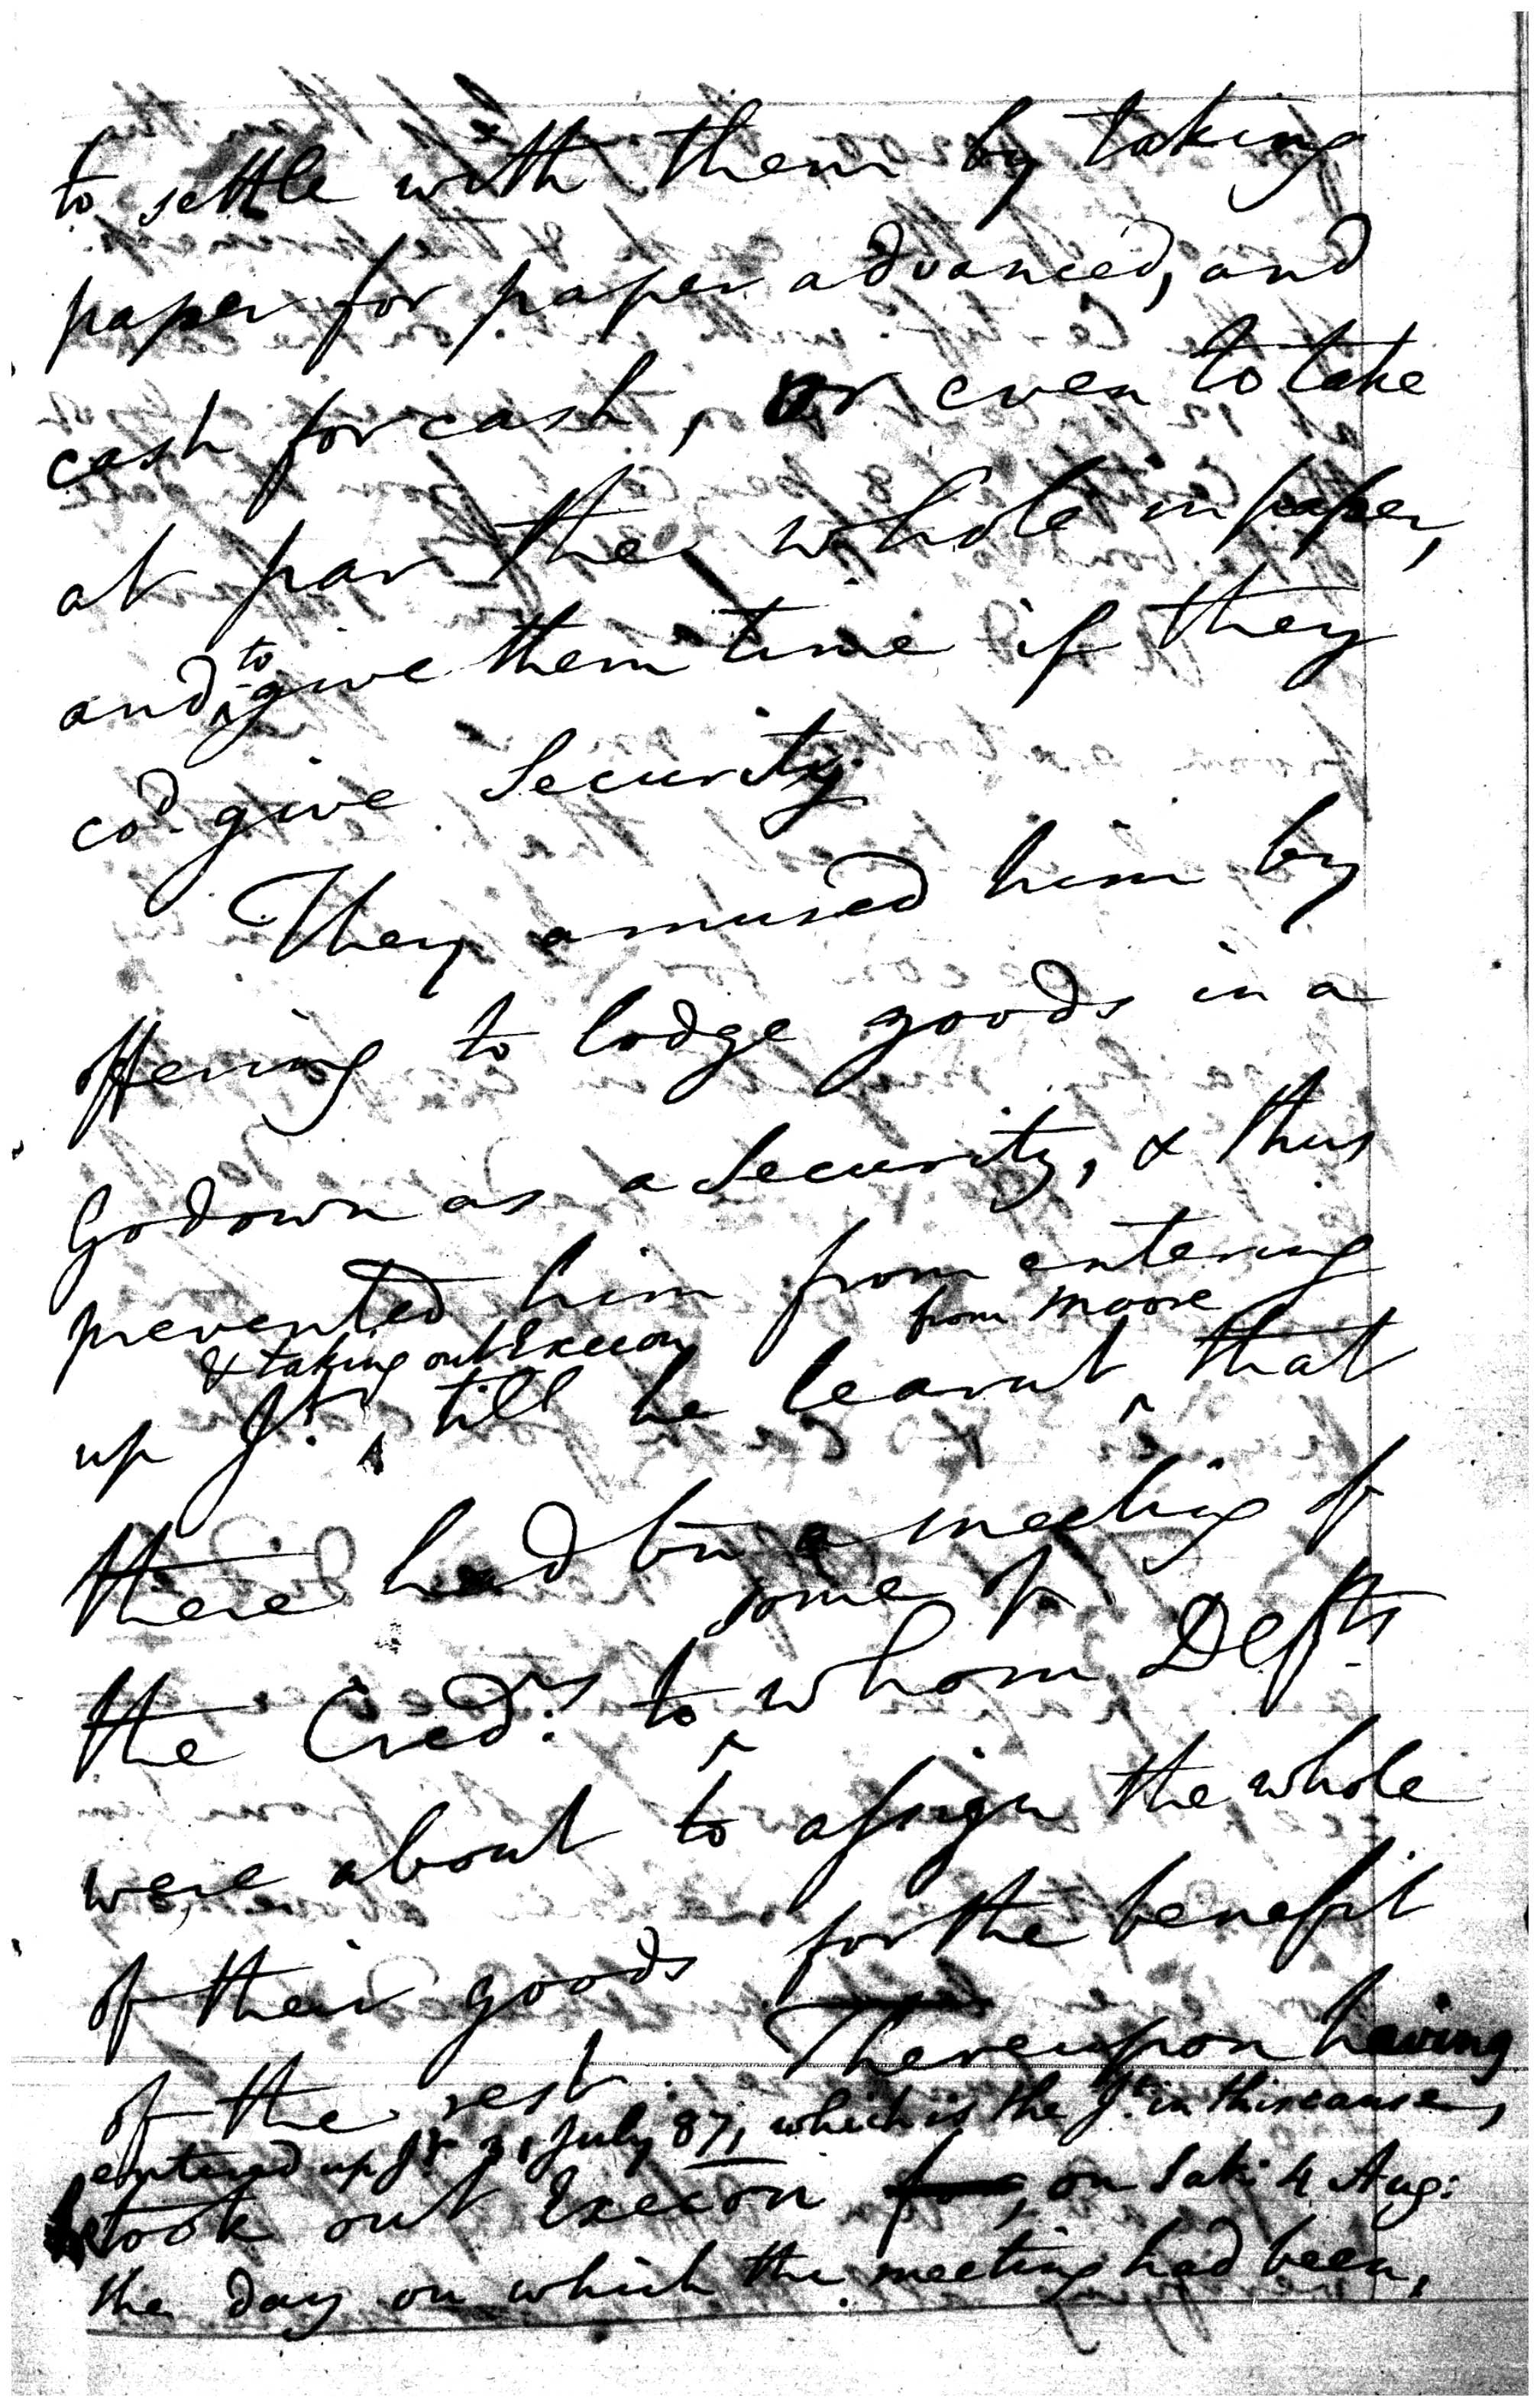 to settle with them by taking
paper for paper advanced, and
cash for cash, or even to take
at par the whole in paper,
and to give them time if they
cod. give Security.
They amused him by
offering to lodge goods in a
Godown as a Security, & thus
prevented him from entering
& taking out Execon from Moore
up Jt. till he learnt that
there had bn a meeting of
some of
the Credrs. to whom Defts.
were about to assign the whole
of their goods for the benefit
of the rest. Thereupon having
entered up Jt 31 July 87, which is the Jt. in this cause,
took out Execon on Sat: 4 Aug:
the day on which the meeting had been,